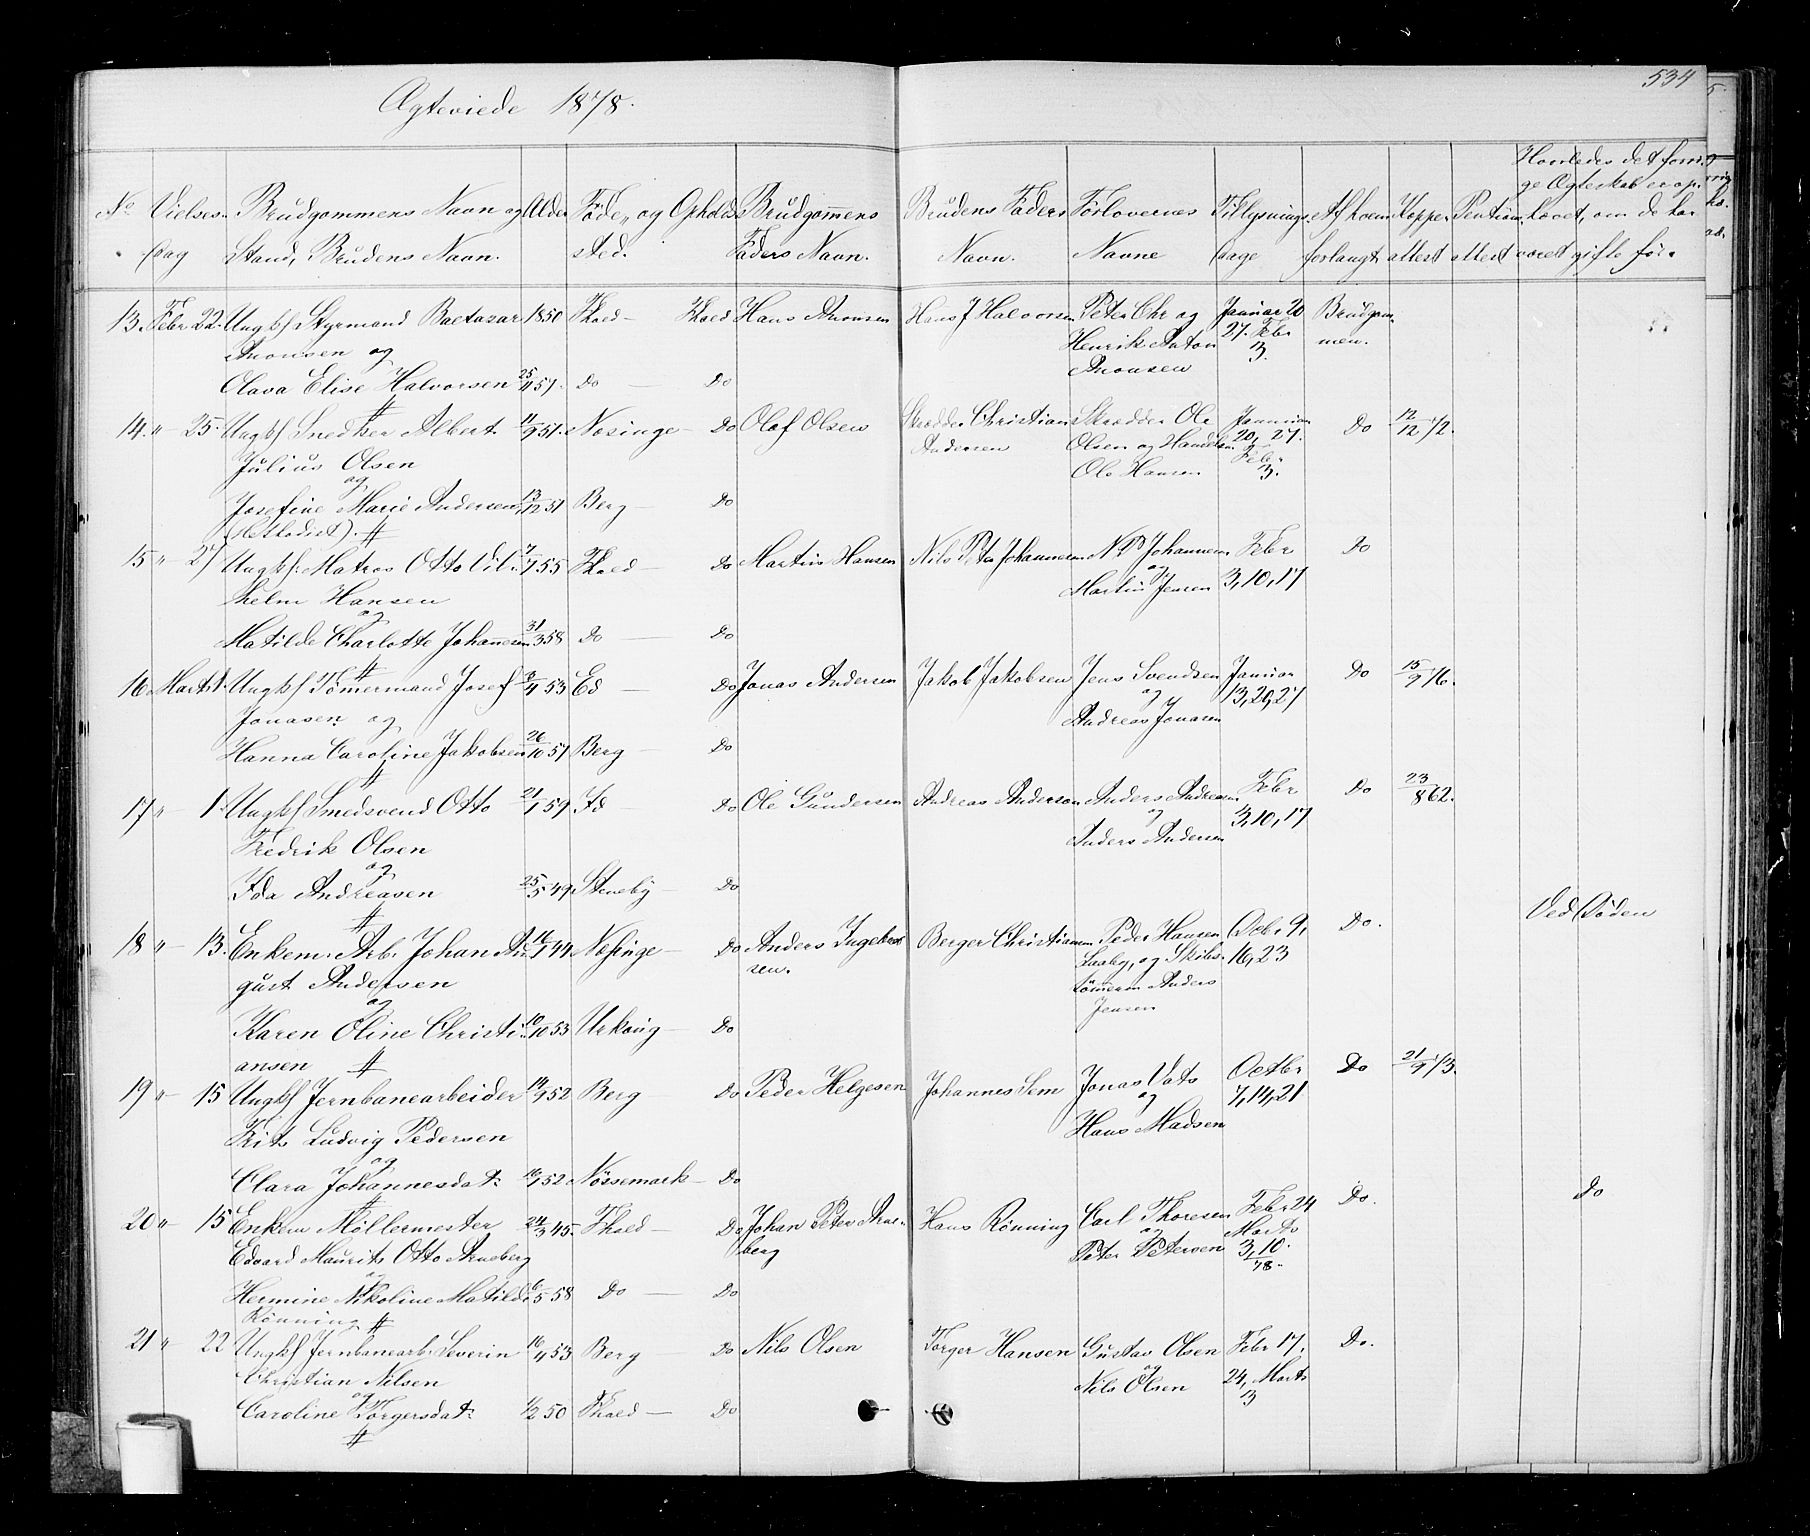 534
Ægteviede 1878.
No Vielses- Brudgommens Navn og Alder Føde- og Opholds Brudgommens Brudens Faders Forlovernes Tillysnings Af hvem Koppe Hvorledes det forri-
ge Ægteskab er op-
hævet, om de har
Dag Stand, Brudens Navn. sted. Faders Navn. Navn. Navne Dage forlangt attest attest været gifte før.
13. Febr 22. Ungkf Styrmand Baltazar 1850 Fhald — Fhald Hans Hans J Halvorsen Peter Chr og Januar 20 Brudgom-
og Henrik Anton 27. Febr men.
3.
Olava Elise Halvorsen 25/11 57. Do — Do
14. " 25. Ungkf Snedker Albert 11/9 51. Næsinge — Do Olaf Olsen Skrædder Christian Skrædder Ole Januar Do 12/12 72.
Julius Olsen Andersen Olsen og 20, 27.
og Ole Hansen Febr 3.
Josefine Marie Andersen 13/12 51 Berg — Do
(Methodist).
15 " 27 Ungkf. Matros Otto Vil- 7/7 55 Fhald — Do Martin Hansen Nils Peter Johannesen N P Johannesen Febr Do
helm Hansen og 3, 10, 17
og Martin Jensen
Matilde Charlotte Johannesen 31/3 58 Do — Do
16 Marts 1. Ungkf Tømermand Josef 53 Ed — Do Jonas Andersen Jakob Jakobsen Jens Svendsen Januar Do 15/9 76.
Jonasen og og 13, 20, 27
Andreas Jonasen
Hanna Caroline Jakobsen 26/10 57 Berg — Do
17 " 1. Ungkf Smedsvend Otto 21/1 59 Id — Do Ole Gundersen Andreas Andersen Anders Andersen Febr Do 23/8 62.
Fredrik Olsen og 3, 10, 17
og Anders Andersen
Ida Andreasen 25/5 49 Steneby — Do
18 " 13. Enkem. Arb. Johan Au- 44 Nesinge — Do Anders Berger Christiansen Peder Hansen Octbr 9, Do. Ved Døden
gust Andersen sen. og Skibs- 16, 23
og tømerm Anders
Jensen
Karen Oline Christi- 10/10 53 Do
ansen
19 " 15 Ungkf Jernbanearbeider 52 Berg — Do Peder Helgesen Johannes Sem Jonas Octbr Do 21/9 73.
Frits Ludvig Pedersen og 7, 14, 21
og Hans Madsen
Clara Johannesdat. 52 Nössemark — Do
20 " 15 Enkem Møllermester 24/3 45. Fhald — Do Johan Peter Arne- Hans Rönning Carl Thoresen Febr 24 Do. Do
Edvard Maurits Otto Arneberg berg og Marts
og Peter Petersen 3, 10.
78.
Hermine Nikoline Matilde 6/5 58 Do — Do
Rönning
21 " 22 Ungkf Jernbanearb. Severin 16/4 53 Berg — Do Nils Olsen Torger Hansen Gustav Olsen Febr 17, Do.
Christian Nilsen og 24, Marts
og Nils Olsen 3
Caroline Torgersdat. 1/2 50 Fhald — Do